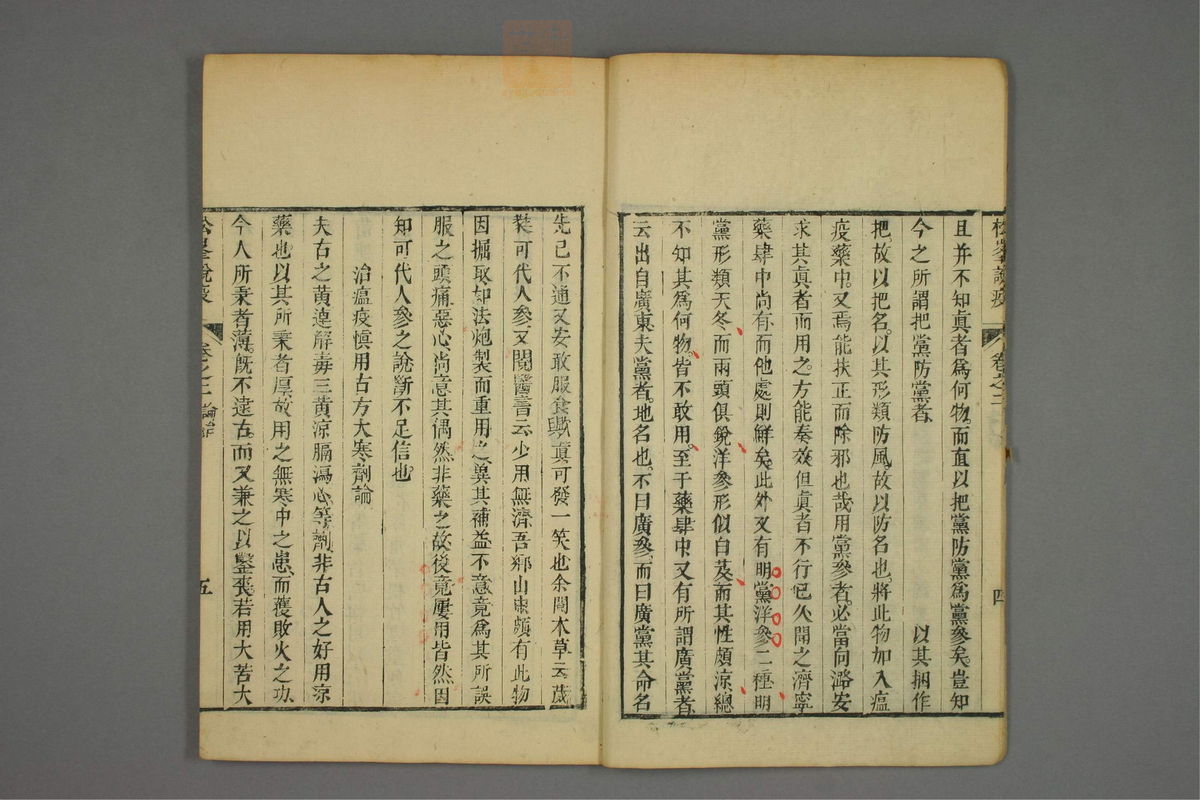 松峯說疫
卷之二
四
且并不知真者爲何物而直以把黨防黨爲黨參矣豈知
今之所謂把黨防黨者以其捆作
把故以把名以其形類防風故以防名也將此物加入瘟
疫藥中又焉能扶正而除邪也哉用黨參者必當向潞安
求其真者而用之方能奏效但真者不行已久聞之濟寧
藥肆中尚有而他處則鮮矣此外又有明黨洋參二種明
黨形類天冬而兩頭俱銳洋參形似白芨而其性頗涼總
不知其爲何物皆不敢用至于藥肆中又有所謂廣黨者
云出自廣東夫黨者地名也不曰廣參而曰廣黨其命名
先已不通又安敢服食與真可發一笑也余閱本草云薎
可代人參又閱醫書云少用無濟吾鄉山東頗有此物
因掘取如法炮製而重用之冀其補益不意竟爲其所誤
服之頭痛惡心尚意其偶然非藥之故後竟屢用皆然因
知可代人參之說斷不足信也
治瘟疫慎用古方大寒劑論
夫古之黃連解毒三黃涼膈瀉心等劑非古人之好用涼
藥也以其所秉者厚故用之無寒中之患而獲敗火之功
今人所秉者薄既不遠古而又兼之以鑿喪若用大苦大
松峯說疫
卷之二
論訂
五